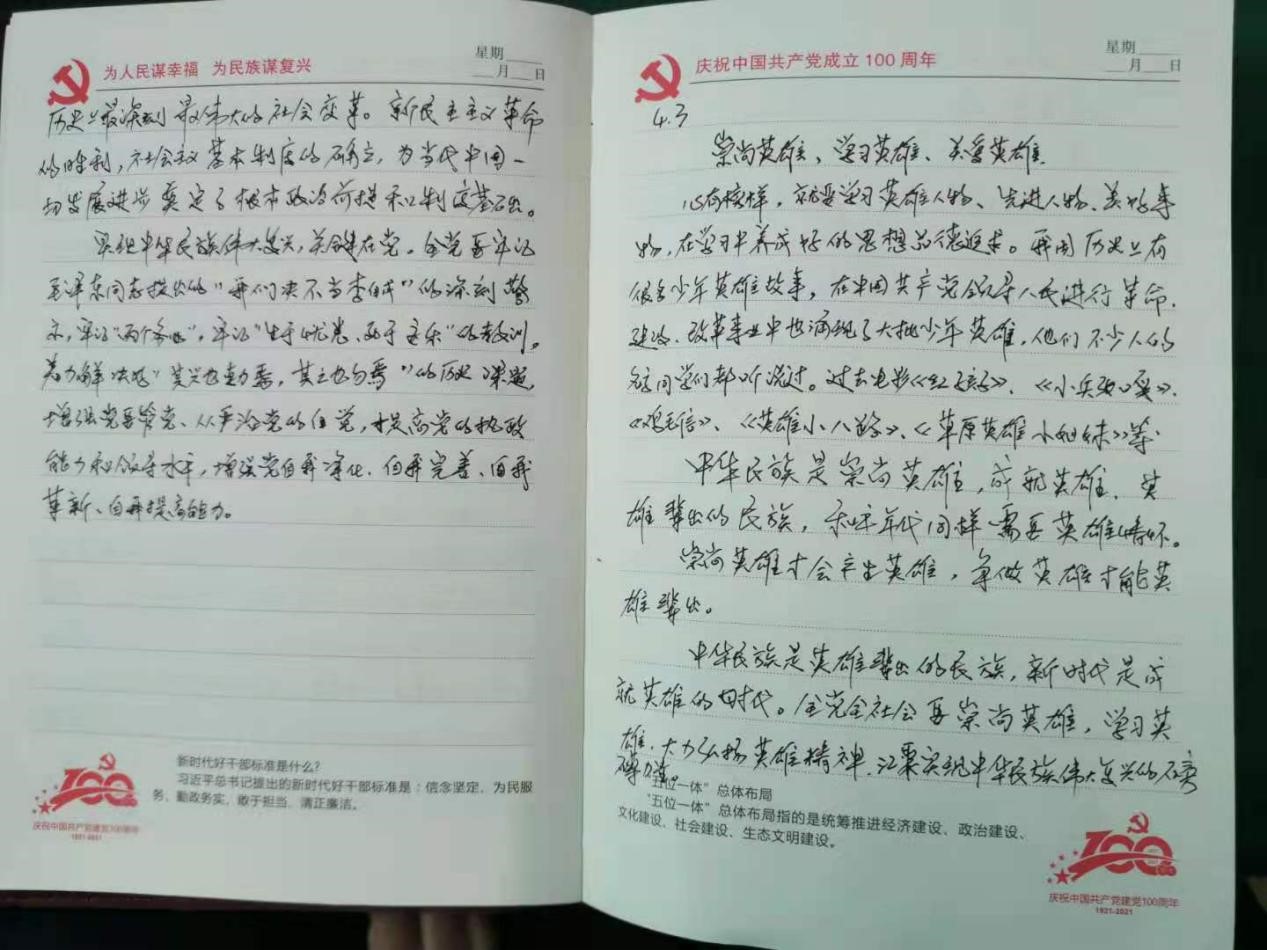 星期
月 日
为人民谋幸福 为民族谋复兴
历史上最深刻最伟大的社会变革。新民主主义革命
的胜利，社会主义基本制度的确立，为当代中国一
切发展进步奠定了根本政治前提和制度基础。
实现中华民族伟大复兴，关键在党。全党要牢记
毛泽东同志提出的“我们决不当李自成”的深刻警
示，牢记“两个务必”，牢记“生于忧患、死于安乐”的教训。
着力解决好“其兴也勃焉，其亡也忽焉”的历史课题，
增强党要管党、从严治党的自觉，提高党的执政
能力和领导水平，增强党自我净化、自我完善、自我
革新、自我提高能力。
新时代好干部标准是什么？
习近平总书记提出的新时代好干部标准是：信念坚定、为民服
务、勤政务实、敢于担当、清正廉洁。
100
庆祝中国共产党建党100周年
1921-2021
星期
月 日
庆祝中国共产党成立100周年
4.3
崇尚英雄、学习英雄、关爱英雄.
心有榜样，就要学习英雄人物、先进人物、美好事
物，在学习中养成好的思想品德追求。我国历史上有
很多少年英雄故事，在中国共产党领导人民进行革命、
建设、改革事业中也涌现了大批少年英雄，他们不少人的
名同学们都听说过。过去电影《红孩子》、《小兵张嘎》、
《鸡毛信》、《英雄小八路》、《草原英雄小姐妹》等.
中华民族是崇尚英雄，成就英雄、英
雄辈出的民族，和平年代同样需要英雄情怀。
崇尚英雄才会产生英雄，争做英雄才能英
雄辈出。
中华民族是英雄辈出的民族，新时代是成
就英雄的时代。全党全社会要崇尚英雄，学习英
雄，大力弘扬英雄精神，汇聚实现中华民族伟大复兴的磅
礴力量。
“五位一体”总体布局
“五位一体”总体布局指的是统筹推进经济建设、政治建设、
文化建设、社会建设、生态文明建设。
100
庆祝中国共产党建党100周年
1921-2021